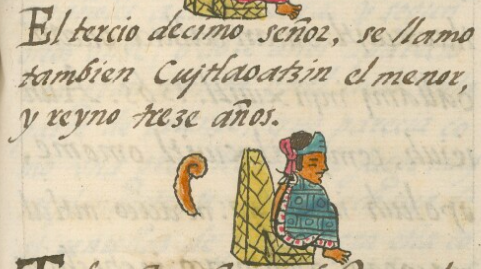 El tercio decimo señor, se llamo
tambien Cujtlaoatzin el menor,
y reyno treze años.